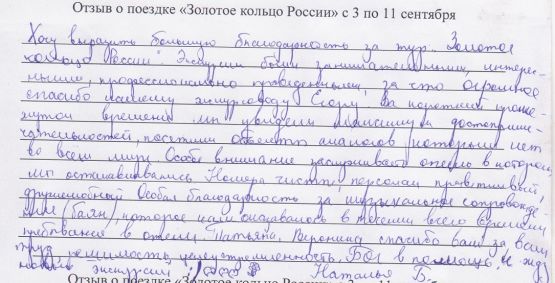 Отзыв о поездке «Золотое кольцо России» с 3 по 11 сентября
Хочу выразить большую благодарность за тур. Золотое
кольцо России" Экскурсии были занимательными, интерес-
ными, профессионально проведенными, за что огромное
спасибо нашему экскурсоводу Егору. За короткий проме-
жуток времени мы увидели максимум достоприме-
чательностей, посетили объекты аналогов которым нет
во всем мире. Особое внимание заслуживает отель в котором
мы останавливались Номера чисты, персонал приветливый,
дружелюбный Особая благодарность за музыкальное сопровожде-
ние (баян), которое нам оказывалось в течении всего времени
пребывания в отеле. Татьяна, Вероника спасибо вам за ваш
труд, решимость, целеустремленность. Бог в помощь, и жду
новых экскурсии
Наталья Б.
Отзыв о поездке «Золотое кольцо России» с 3 по 11 сентября